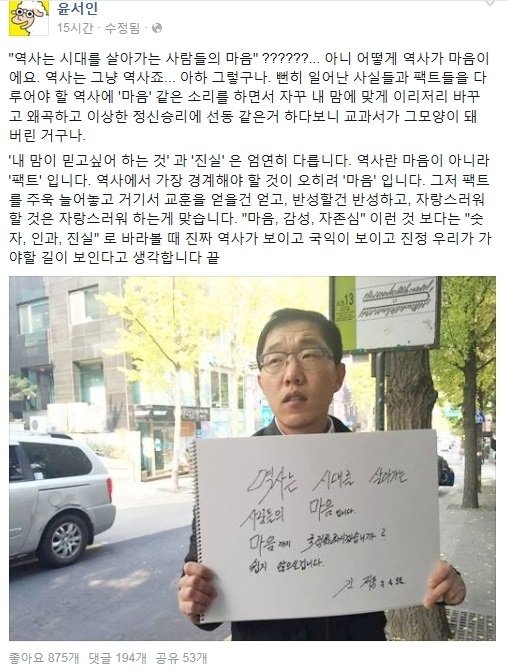 윤서인
15시간 · 수정됨 ·
"역사는 시대를 살아가는 사람들의 마음" ??????... 아니 어떻게 역사가 마음이
에요. 역사는 그냥 역사죠... 아하 그렇구나. 뻔히 일어난 사실들과 팩트들을 다
루어야 할 역사에 '마음' 같은 소리를 하면서 자꾸 내 맘에 맞게 이리저리 바꾸
고 왜곡하고 이상한 정신승리에 선동 같은거 하다보니 교과서가 그모양이 돼
버린 거구나.
'내 맘이 믿고싶어 하는 것' 과 '진실' 은 엄연히 다릅니다. 역사란 마음이 아니라
'팩트' 입니다. 역사에서 가장 경계해야 할 것이 오히려 '마음' 입니다. 그저 팩트
를 주욱 늘어놓고 거기서 교훈을 얻을건 얻고, 반성할건 반성하고, 자랑스러워
할 것은 자랑스러워 하는게 맞습니다. "마음, 감성, 자존심" 이런 것 보다는 "숫
자, 인과, 진실" 로 바라볼 때 진짜 역사가 보이고 국익이 보이고 진정 우리가 가
야할 길이 보인다고 생각합니다 끝
13
역사는 시대를 살아가는
사람들의 마음입니다.
마음까지 국정화하시겠습니까?
쉽지 않으실겁니다.
좋아요 875개 댓글 194개 공유 53개